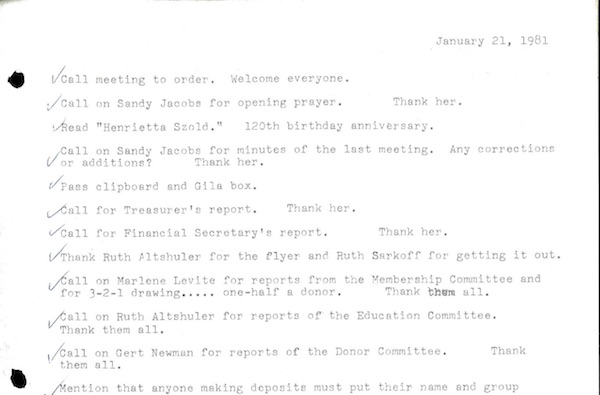 January 21, 1981
✓Call meeting to order. Welcome everyone.
✓Call on Sandy Jacobs for opening prayer. Thank her.
✓Read "Henrietta Szold." 120th birthday anniversary.
✓Call on Sandy Jacobs for minutes of the last meeting. Any corrections
or additions? Thank her.
✓Pass clipboard and Gila box.
✓Call for Treasurer's report. Thank her.
✓Call for Financial Secretary's report. Thank her.
✓Thank Ruth Altshuler for the flyer and Ruth Sarkoff for getting it out.
✓Call on Marlene Levite for reports from the Membership Committee and
for 3-2-1 drawing..... one-half a donor. Thank them all.
✓Call on Ruth Altshuler for reports of the Education Committee.
Thank them all.
✓Call on Gert Newman for reports of the Donor Committee. Thank
them all.
✓Mention that anyone making deposits must put their name and group